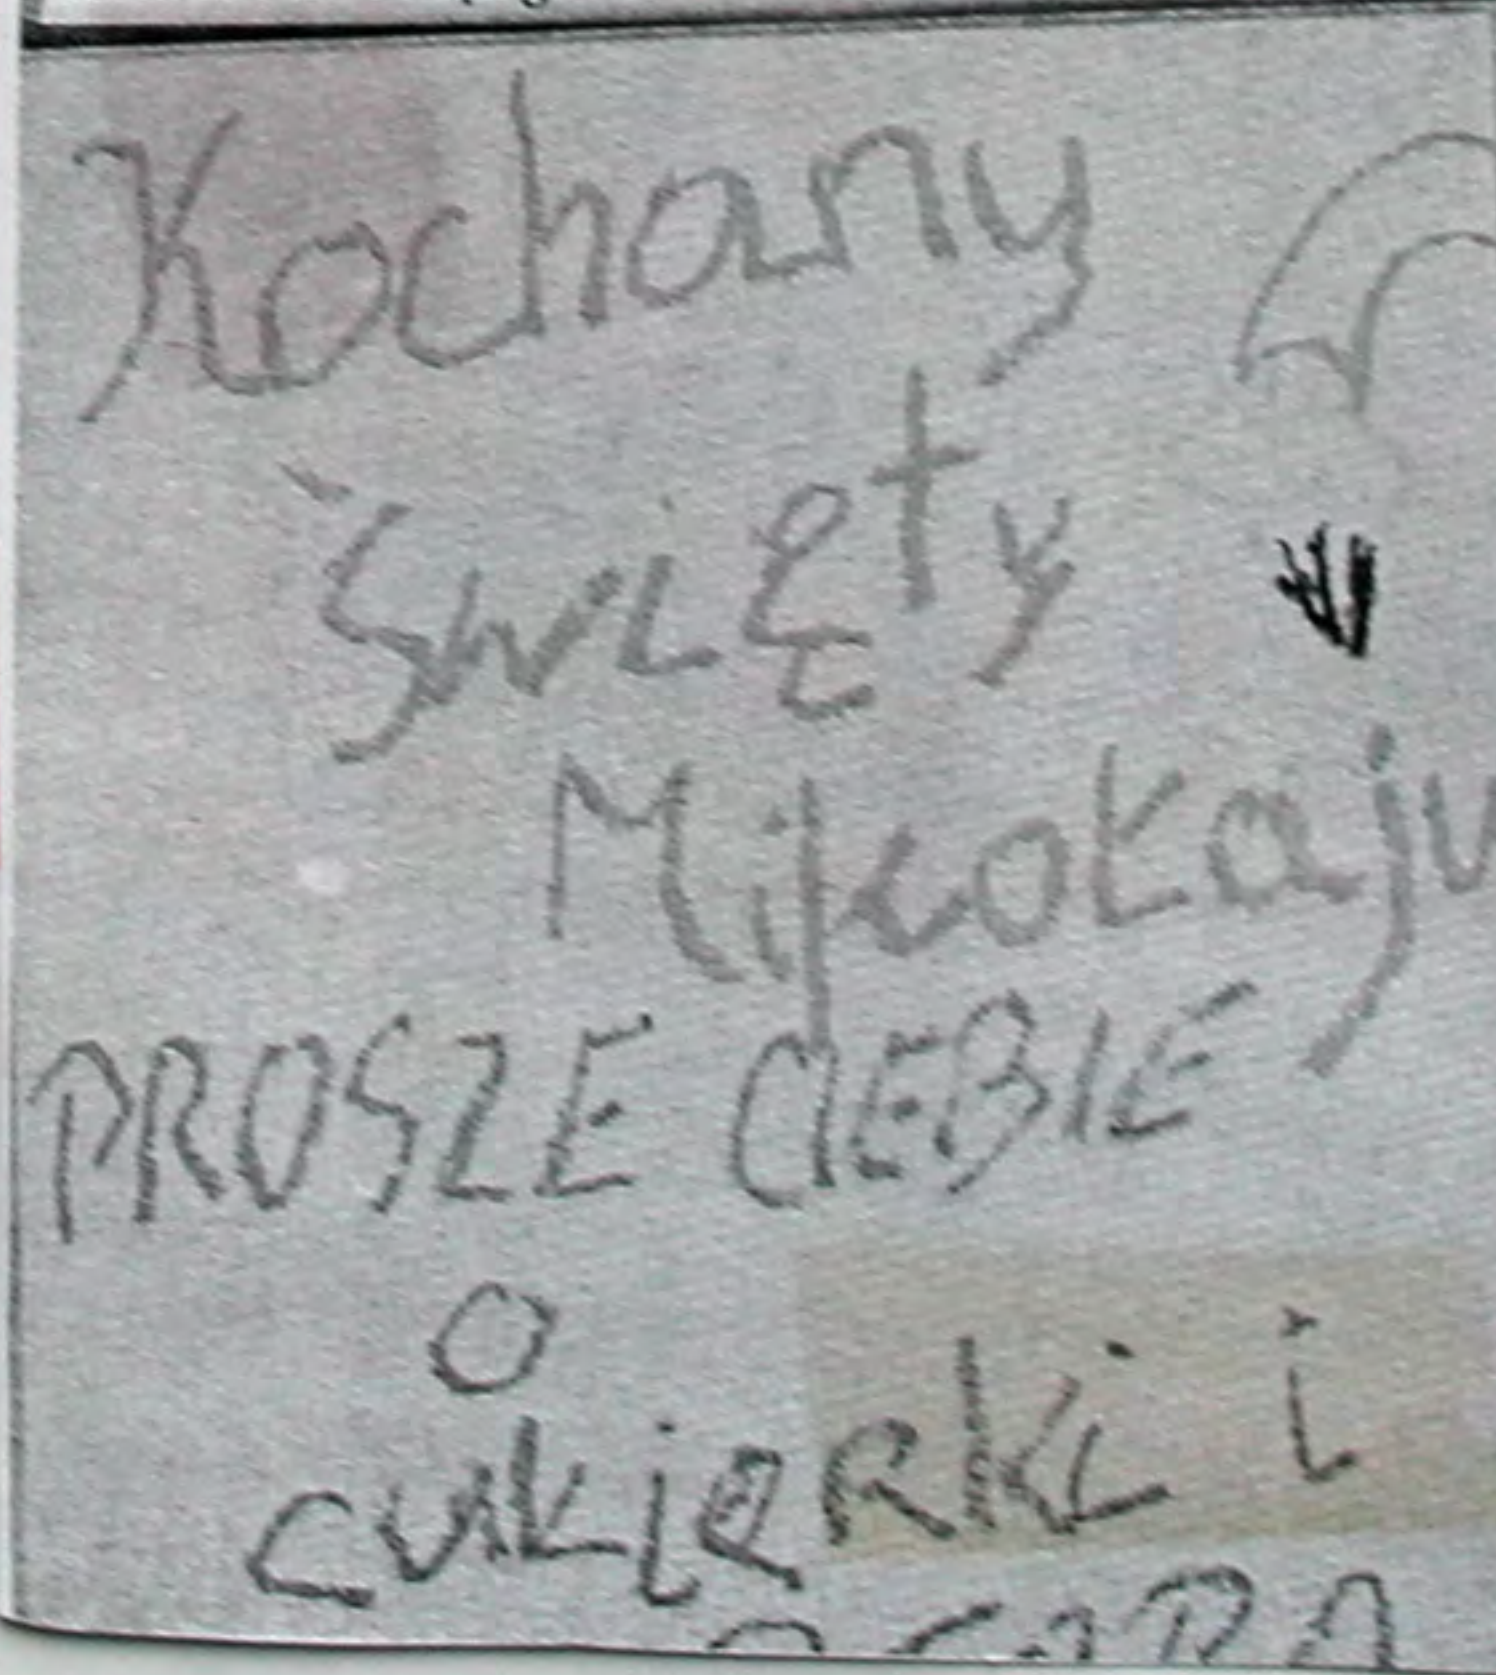 Kochany
Święty
Mikołaju
PROSZE CIEBIE
O
cukieRki i